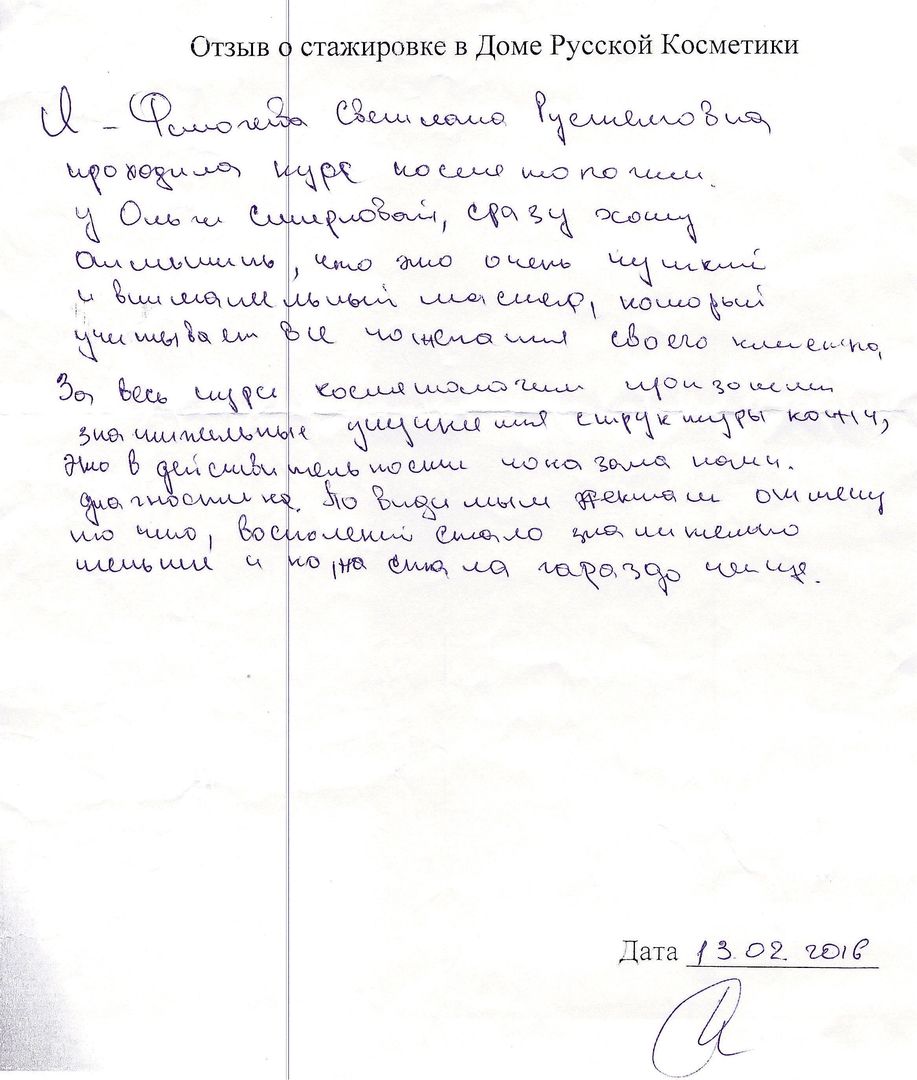 Отзыв о стажировке в Доме Русской Косметики
Я - Светлана Рустемовна
проходила курс косметологии.
у Ольги Смирновой, сразу хочу
отметить, что это очень чуткий
и внимательный мастер, который
учитывает все пожелания своего клиента,
За весь курс косметологии произошли
значительные улучшения структуры кожи,
это в действительности показала нам.
диагностика. По видимым отмечу
то что, воспалений стало значительно
меньше и кожа стала гараздо чище.
Дата 13.02.2016